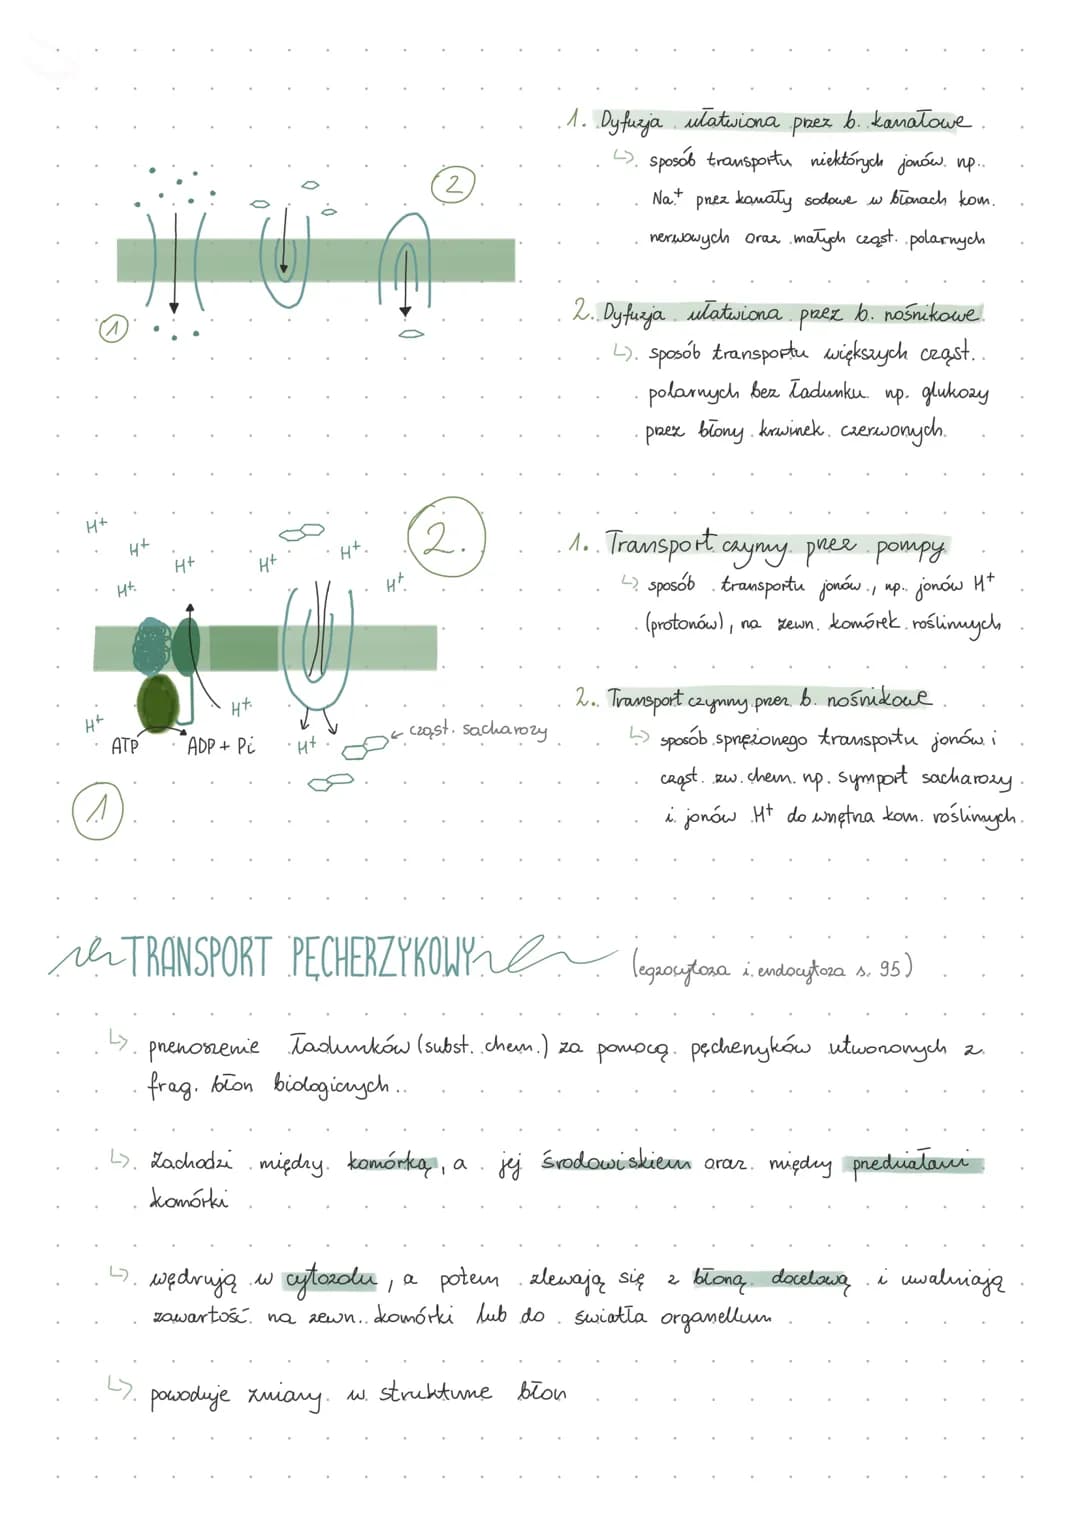 1. Dyfuzja ułatwiona przez b. kanałowe
↳ sposób transportu niektórych jonów np.
Na+ przez kanały sodowe w błonach kom.
nerwowych oraz małych cząst. polarnych
2
1
2. Dyfuzja ułatwiona przez b. nośnikowe
↳ sposób transportu większych cząst.
polarnych bez ładunku np. glukozy
przez błony krwinek czerwonych.
H+ H+ H+ H+ H+ H+ H+
2.
1. Transport czynny przez pompy
↳ sposób transportu jonów, np. jonów H+
(protonów), na zewn. komórek roślinnych
H+ H+
ATP ADP + Pi H+
← cząst. sacharozy
1
2. Transport czynny przez b. nośnikowe
↳ sposób sprężonego transportu jonów i
cząst. zw. chem. np. symport sacharozy
i jonów H+ do wnętrza kom. roślinnych.
TRANSPORT PĘCHERZYKOWY (egzocytoza i endocytoza s. 95)
↳ przenoszenie ładunków (subst. chem.) za pomocą pęcherzyków utworzonych z
frag. błon biologicznych.
↳ Zachodzi między komórką, a jej środowiskiem oraz między przedziałami
komórki
↳ wędrują w cytozolu, a potem zlewają się z błoną docelową i uwalniają
zawartość na zewn. komórki lub do światła organellum
↳ powoduje zmiany w strukturze błon